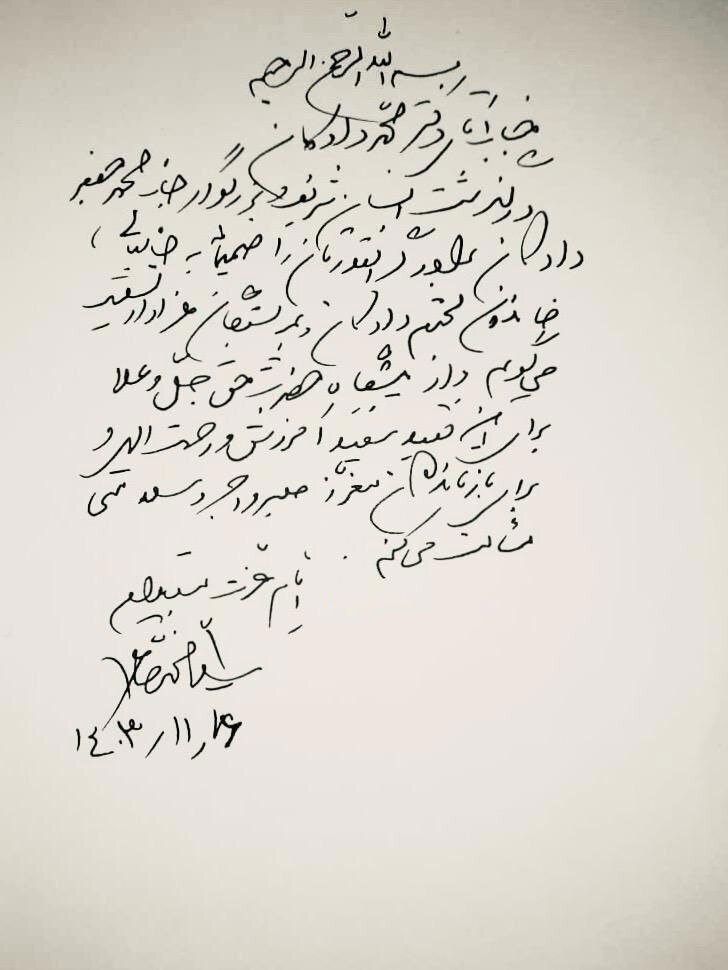 بسم الله الرحمن الرحیم
جناب آقای دکتر محمد دادکان
درگذشت انسان شریف و بزرگوار جناب محمد جعفر
دادکان برادر گرانقدرتان را صمیمانه به جنابعالی،
خاندان محترم دادکان و بستگان عزادار تسلیت
می‌گویم و از پیشگاه حضرت حق جلّ و علا
برای این فقید سعید آمرزش و رحمت الهی و
برای بازماندگان معزز صبر و اجر و سلامتی
مسألت می‌کنم.
ایام عزت مستدام
سید محمد خاتمی
۱۴۰۳/۱۱/۲۶